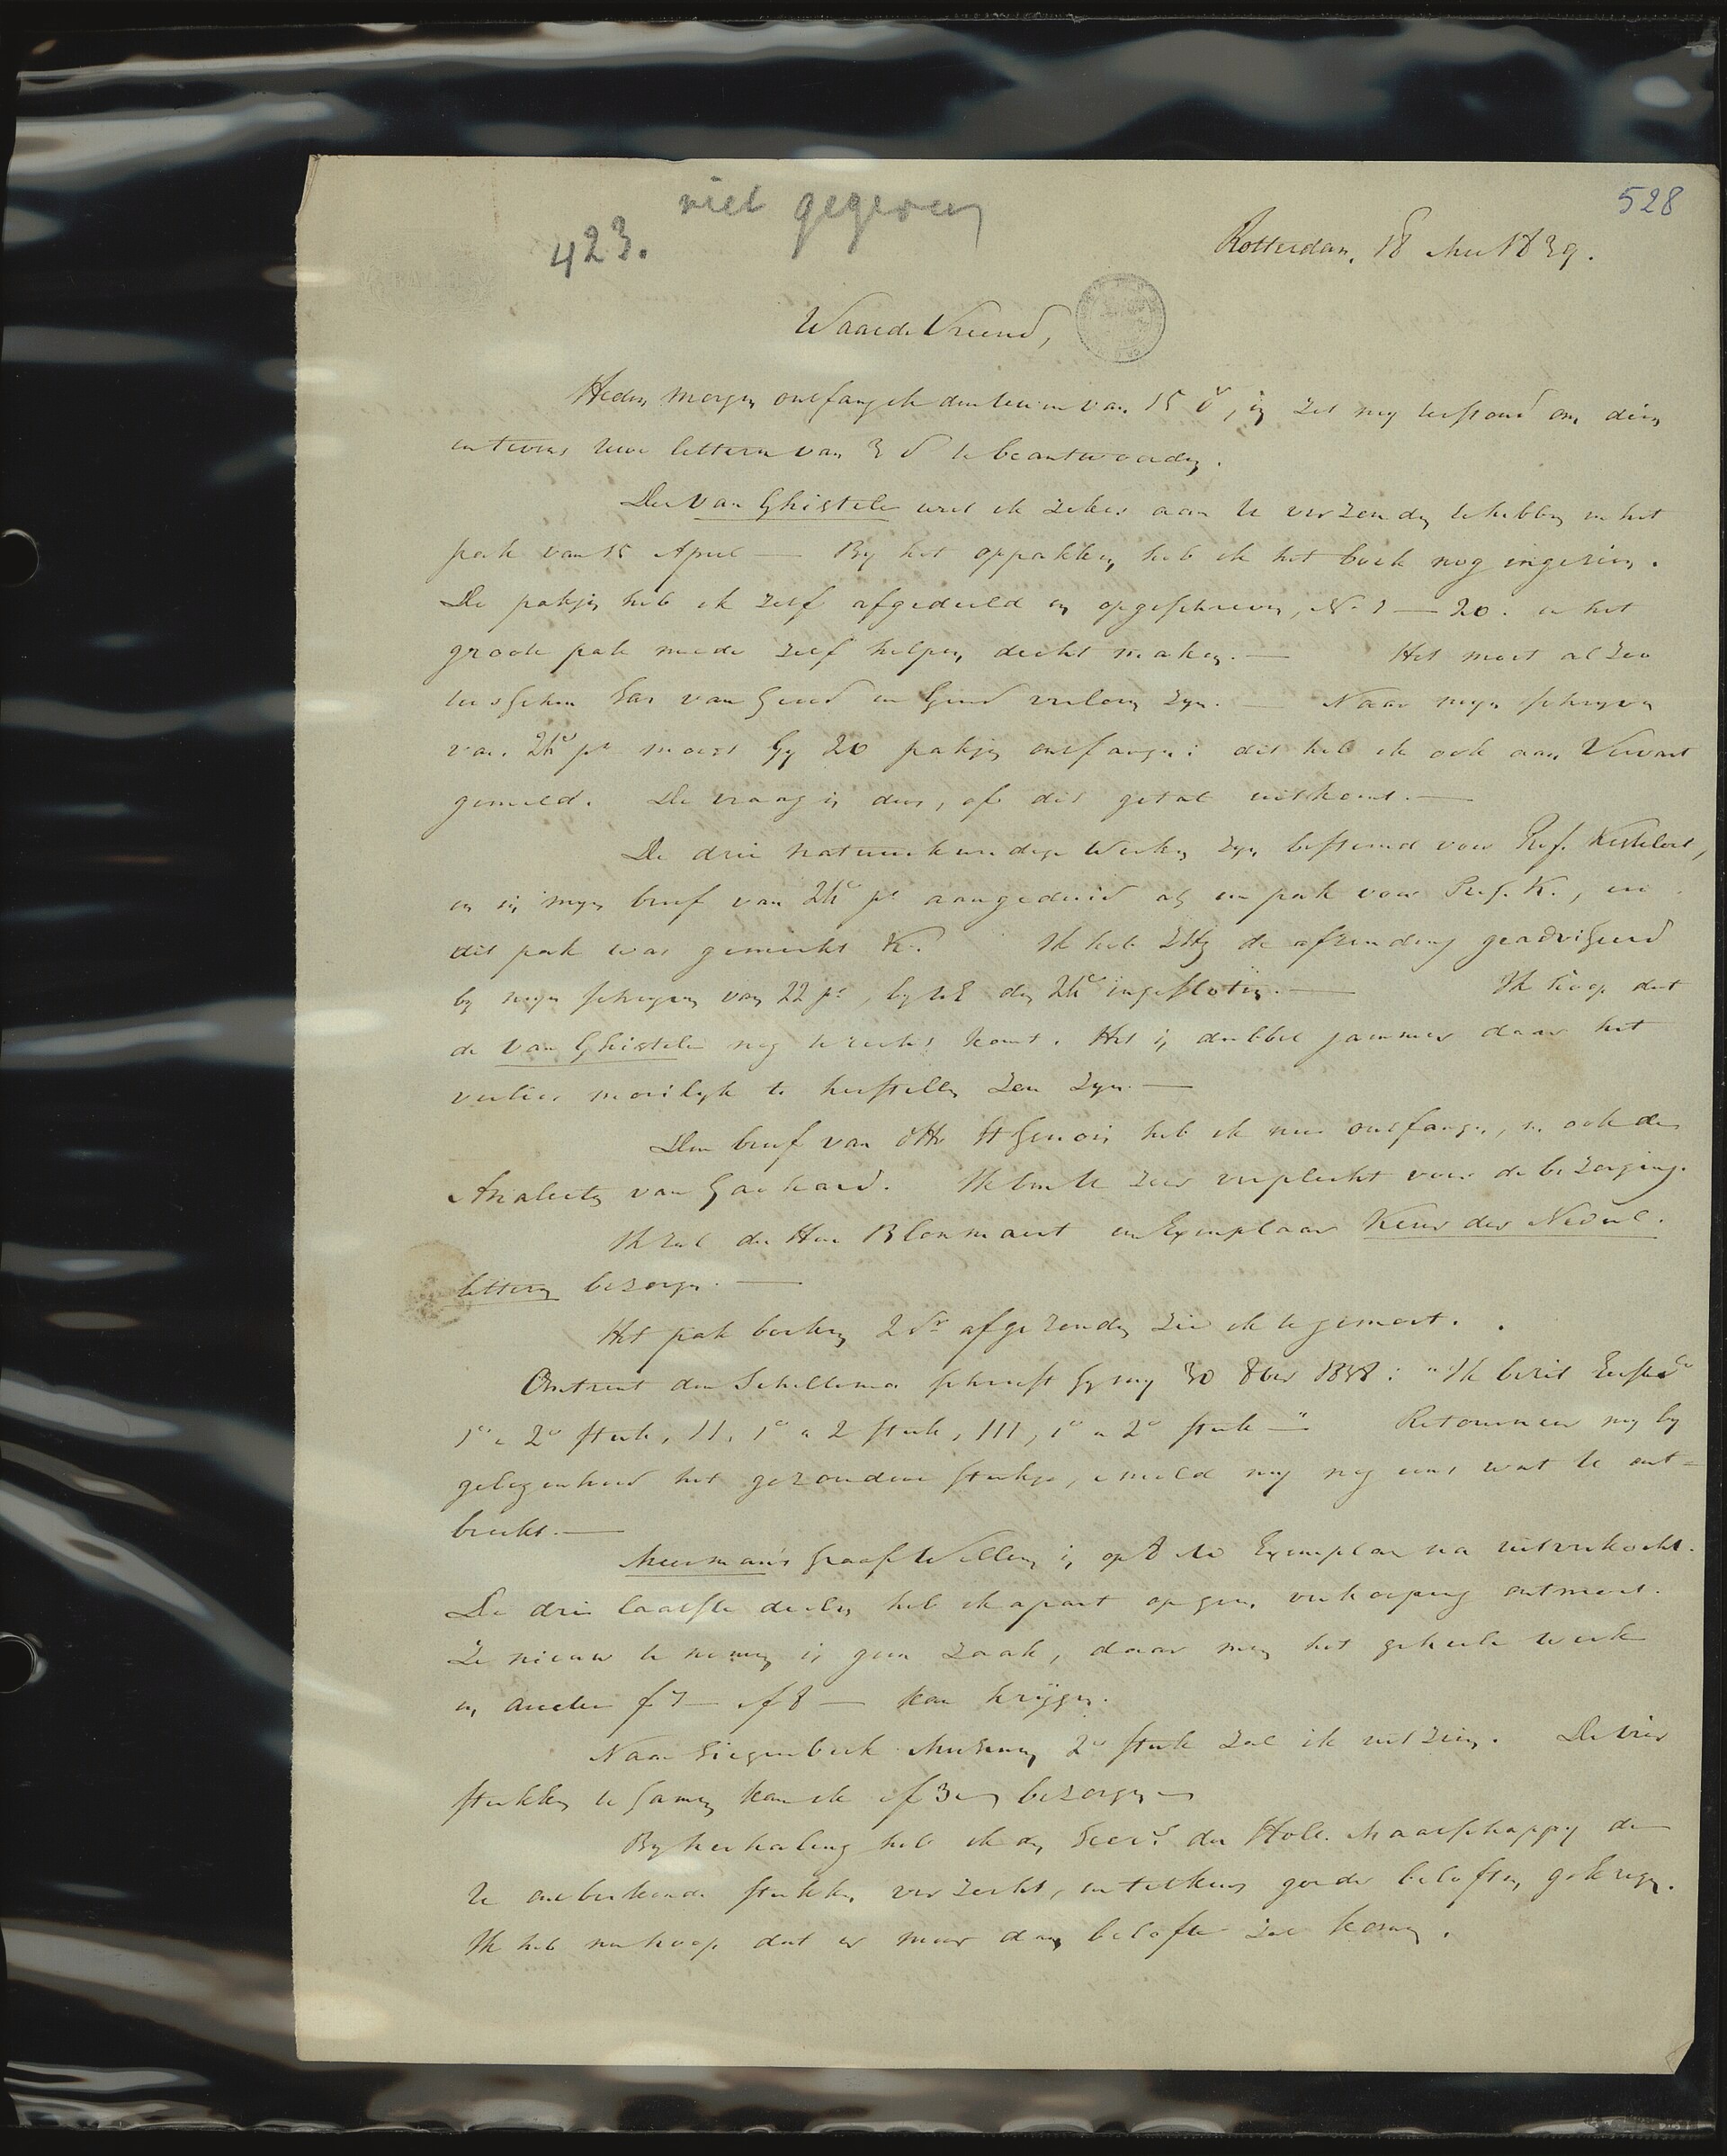 niet gegeven
528
423.
Rotterdam, 18 Mei 1839.
Waarde Vriend,
Heden morgen ontfang ik den uwen van 15 d, en zet my terstond om dien
en tevens uwe letteren van 3 d te beantwoorden.
Den Van Ghistele weet ik zeker aan U verzonden te hebben in het
pak van 15 April — By het oppakken heb ik het boek nog ingezien.
De pakjes heb ik zelf afgedeeld en opgeschreven, No 1 — 20. en het
groote pak mede zelf helpen dicht maken. — Het moet alzoo
tusschen van Gend en Gend verloren zyn. — Naar myn schryven
van 24e ps moest Gy 20 pakjes ontfangen: dit heb ik ook aan Vervart
gemeld. De vraag is dus, of dit getal uitkomt. —
De drie natuurkundige Werken zyn bestemd voor Prof. Kesteloot,
en in myn brief van 24e ps aangeduid als een pak voor Prof. K., en
dit pak was gemerkt K. Ik heb ZEG de afzending geadviseerd
by myn schryven van 22 ps, by UE den 24e ingesloten. — Ik hoop dat
de Van Ghistele nog te recht komt. Het is dubbel jammer daar het
verlies moeilyk te herstellen zou zyn. —
Den brief van St Genois heb ik nu ontfangen, en ook de
Analectes van Gachard. Ik ben U zeer verplicht voor de bezorging.
Ik zal den Heer Blommaert een Exemplaar Keur der Nederl.
letteren bezorgen. —
Het pak boeken 2 dr afgezonden zie ik te gemoet.
Omtrent den Scheltema schreeft Gy my 30 8ber 1838: "Ik bezit Eerste
1e en 2e stuk, II, 1e en 2 stuk, III, 1e en 2e stuk —" Retourneer my by
gelegenheid het gezondene stukje, en meld my nog eens wat U ont-
breekt. —
Meerman's Graaf Willem is op 8 Exemplaren na uitverkocht.
De drie laatste deelen heb ik apart op geen verkooping ontmoet.
Ze nieuw te nemen is geen zaak, daar men het geheele werk
in auctie f 7 — of 8 — kan krygen.
Naar Siegenbeek Museum 2e stuk zal ik uitzien. De vier
stukken te samen kan ik bezorgen
By herhaling heb ik den Secrs der Holl. Maatschappy de
U ontbrekende stukken verzocht, en telkens goede beloften gekregen.
Ik heb nu hoop dat er meer dan belofte zal komen.